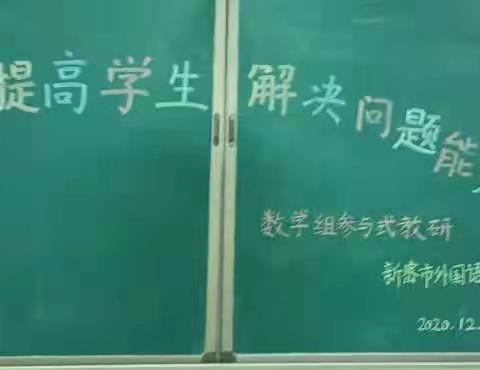 提高学生解决问题能
数学组参与式教研
新密市外国语
2020.12.